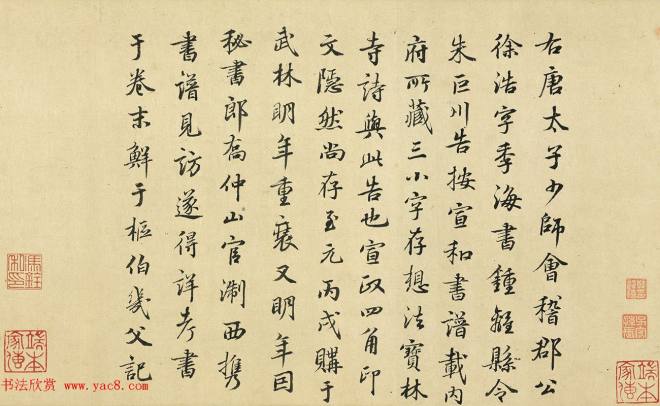 右唐太子少師會稽郡公
徐浩字季海書鍾離縣令
朱巨川告按宣和書譜載内
府所藏三小字存想法寳林
寺詩與此告也宣政四角印
文隠然尚存至元丙戌購于
武林明年重裝又明年因
秘書郎喬仲山官淛西携
書譜見訪遂得詳考書
于卷末鮮于樞伯幾父記
端本
家傳
端本
家傳
书法欣赏 www.yac8.com